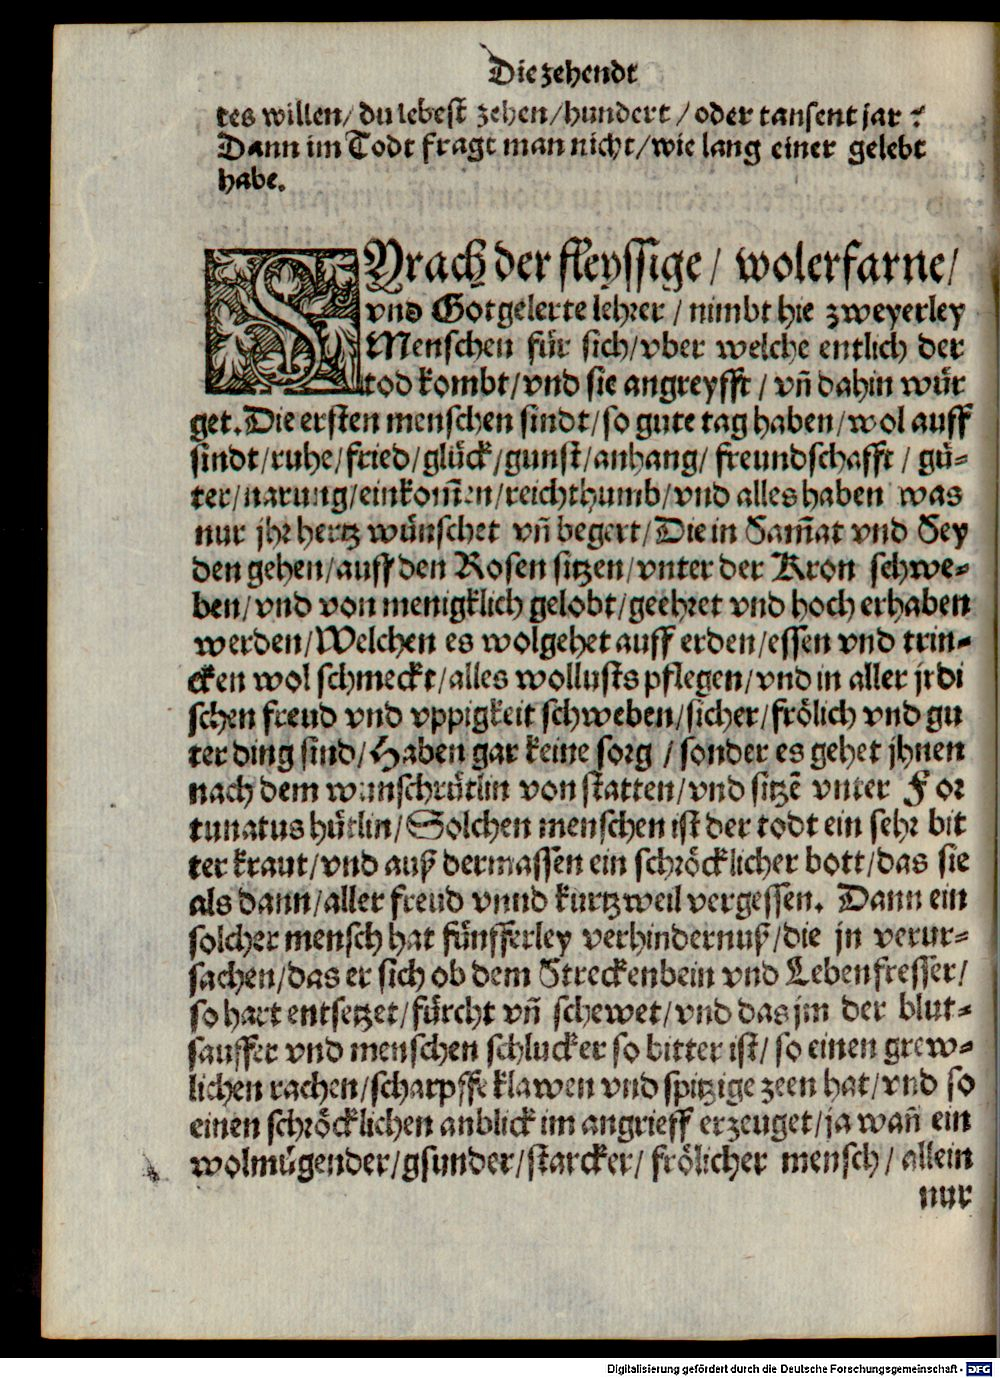 Die zehendt
tes willen/ du lebest zehen/hundert / oder tausent jar ?
Dann im Todt fragt man nicht/wie lang einer gelebt
habe.
SYrach der fleyssige/ wolerfarne/
vnd Gotgelerte lehrer / nimbt hie zweyerley
Menschen für sich/vber welche entlich der
tod kombt/vnd sie angreyfft / vñ dahin wür
get. Die ersten menschen sindt/so gute tag haben/wol auff
sindt/ruhe/fried/glück/gunst/anhang/ freundschafft / gü-
ter/narung/einkom̃en/reichthumb/vnd alles haben was
nur jhr hertz wünschet vñ begert/Die in Sam̃at vnd Sey
den gehen/auff den Rosen sitzen/vnter der Kron schwe-
ben/vnd von menigklich gelobt/geehret vnd hoch erhaben
werden/Welchen es wolgehet auff erden/essen vnd trin-
cken wol schmeckt/alles wollusts pflegen/vnd in aller jrdi
schen freud vnd vppigkeit schweben/sicher/frölich vnd gu
ter ding sind/Haben gar keine sorg / sonder es gehet jhnen
nach dem wunschrütlin von statten/vnd sitzẽ vnter For
tunatus hütlin/Solchen menschen ist der todt ein sehr bit
ter kraut/vnd auß dermassen ein schröcklicher bott/das sie
als dann/aller freud vnnd kurtzweil vergessen. Dann ein
solcher mensch hat fünfferley verhindernuß/die jn verur-
sachen/das er sich ob dem Streckenbein vnd Lebenfresser/
so hart entsetzet/fürcht vñ schewet/vnd das jm der blut-
sauffer vnd menschen schlucker so bitter ist/ so einen grew-
lichen rachen/scharpffe klawen vnd spitzige zeen hat/vnd so
einen schröcklichen anblick im angrieff erzeuget/ja wañ ein
wolmügender/gsunder/starcker/ frölicher mensch/ allein
nur
Digitalisierung gefördert durch die Deutsche Forschungsgemeinschaft - DFG